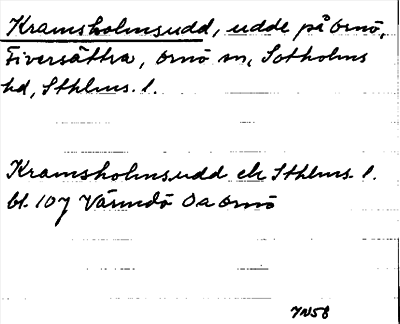 Kramsholmsudd, udde på Ornö,
Fiversättra, Ornö sn, Sotholms
hd, Sthlms. l.
Kramsholmsudd ek Sthlms. l.
bl. 107 Värmdö Oa Ornö
JN58